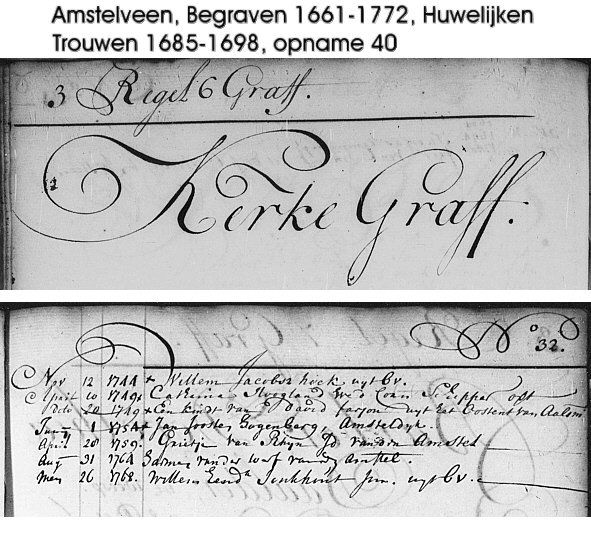 Amstelveen, Begraven 1661-1772, Huwelijken
Trouwen 1685-1698, opname 40
3 Regel 6 Graff.
Kerke Graff.
No 32.
Nov 12 1744 + Willem Jacobsz hoek uyt Cv.
April 10 1749 Catharina Hoogland Wed Coen Schipper
Dito 20 1749 + Een kindt van David uyt het Oosteint van Aalsm
Juny 1 1754 + Jan Jooste Amsteldyk.
April 28 1759. Grietje van Rhijn van den Amstel
Aug 31 1764 Harmen vander werf vande Amstel.
May 26 1768. Willem uyt Cv.